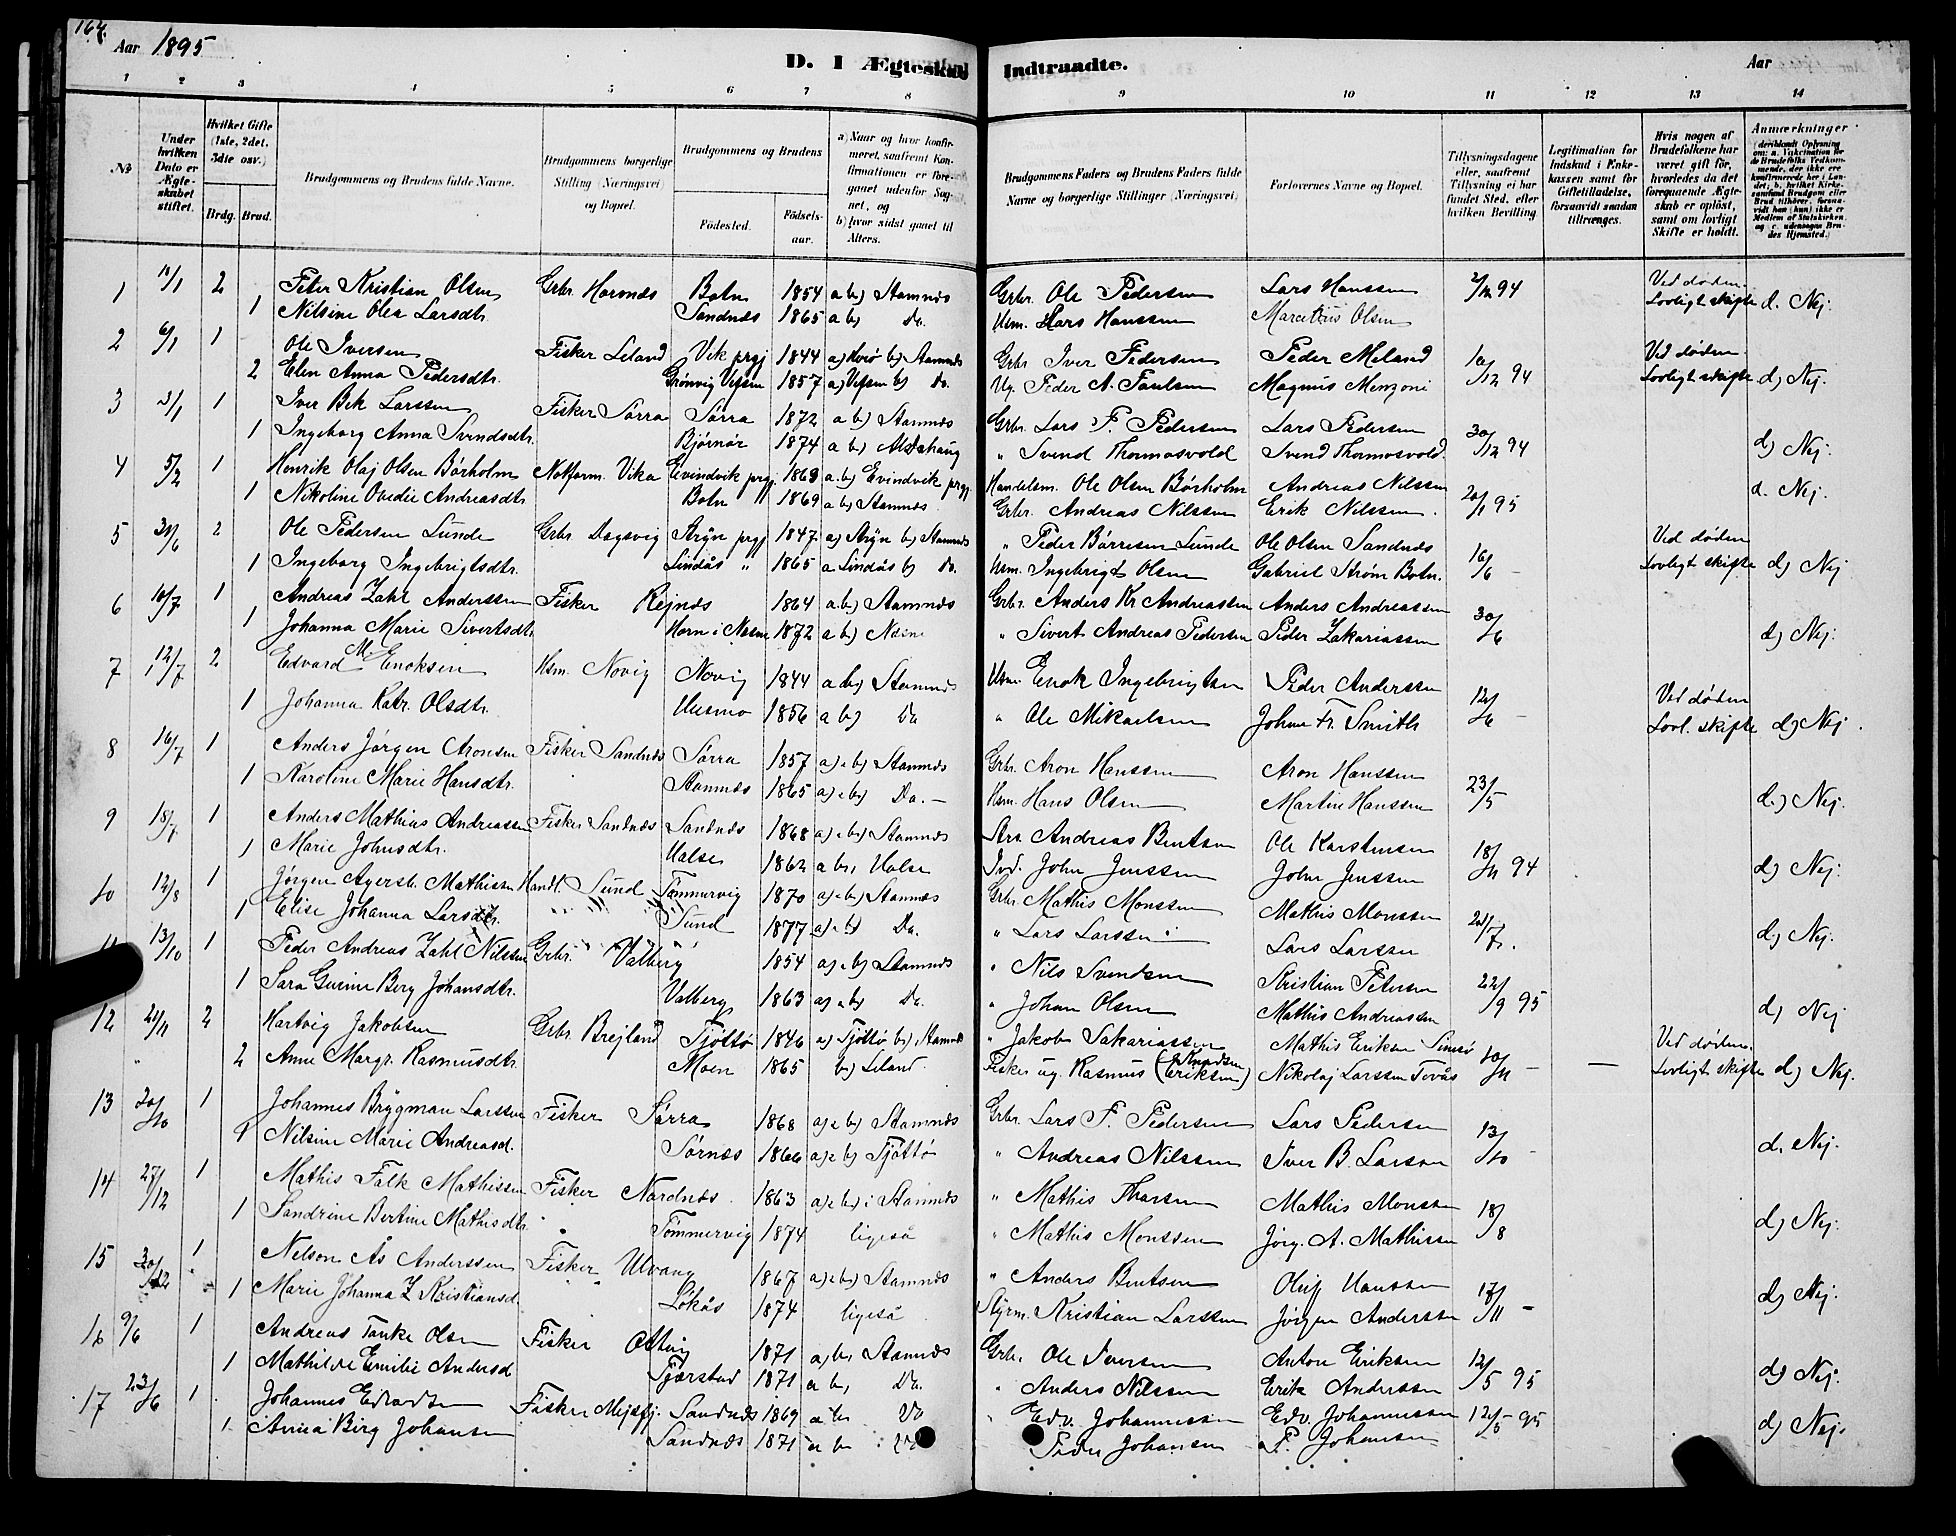 164.
Aar 1895
D. I Ægteskab Indtraadte.
Aar
1 2 3 4 5 6 7 8 9 10 11 12 13 14
No
Under hvilken Dato er Ægteskabet stiftet.
Hvilket Gifte (1ste, 2det, 3die osv.)
Brdg. Brud.
Brudgommens og Brudens fulde Navne.
Brudgommens borgerlige Stilling (Næringsvei) og Bopæl.
Brudgommens og Brudens
Fødested. Fødselsaar.
a) Naar og hvor konfirmeret, saafremt Konfirmationen er foregaaet udenfor Sognet, og b) hvor sidst gaaet til Alters.
Brudgommens Faders og Brudens Faders fulde Navne og borgerlige Stillinger (Næringsvei)
Forlovernes Navne og Bopæl.
Tillysningsdagene eller, saafremt Tillysning ei har fundet Sted, efter hvilken Bevilling.
Legitimation for Indskud i Enkekassen samt for Giftetilladelse, forsaavidt saadan tiltrænges.
Hvis nogen af Brudefolkene har været gift før, hvorledes da det foregaaende Ægteskab er opløst, samt om lovligt Skifte er holdt.
Anmærkninger (deriblandt Oplysning om: a. Vakcination for de Brudefolks Vedkommende, der ikke ere konfirmerede her i Landet; b. hvilket Kirkesamfund Brudgom eller Brud tilhører, forsaavidt han (hun) ikke er Medlem af Statskirken, og c. udensogns Brudes Hjemsted.)
1 2 Peter Kristian Olsen Grbr. Botn 1854 a b) Stamnes Grbr. Ole Pedersen Lars Hanssen 94 Ved døden
1 Nilsine Olea Larsdtr. Sandnes 1865 a b) Do. Hsm. Lars Hanssen Marcelius Olsen Lovligt skifte d. Nej.
2 6/1 1 Ole Iversen Fisker Leland Vik prgj 1844 b) Stamnes Grbr. Iver Pedersen Peder Meland 10/12 94 Ved døden
2 Elen Anna Pedersdtr. Grønvig Vefsen 1857 a) Vefsen b) Do. Ug. Peder A. Paulsen Magnus Lovligt skifte d) Nej.
3 1 Iver Bek Larssen Fisker Sørra Sørra 1872 a b) Stamnes Grbr. Lars P. Pedersen Lars Pedersen 30/12 94
1 Ingeborg Anna Svendsdtr. Bjørnør 1874 a b) Alstahaug " Svend Thormosvold Svend Thormosvold. d) Nej.
4 5/2 1 Henrik Olaj Olsen Børholm Notform. Vika Evindvik prgj. 1863 a b) Evindvik prgj. Handelsm. Ole Olsen Børholm Andreas Nilssen 20/1 95
1 Nikoline Ovedie Andreasdtr. Botn " 1869 a b) Stamnes. Grbr. Andreas Nilssen Erik Nilssen. d. Nej.
5 2 Ole Pedersen Lunde Grbr. Dagsvig Stryn prgj 1847 a) Stryn b) Stamnes " Peder Børresen Lunde Ole Olsen Sandnes 16/6 - Ved døden
1 Ingeborg Ingebrigtsdtr. Lindås " 1865 a Lindås b) Do. Hsm. Ingebrigt Olsen Gabriel Strøm Botn. Lovligt skifte d) Nej
6 10/7 1 Andreas Zahl Anderssen Fisker Rejnes 1864 a b) Stamnes Grbr. Anders Kr Andreassen Anders Andreassen 30/6
1 Johanna Marie Sivertsdtr. Horn i Nesne 1872 a b) Nesne " Sivert Andreas Pedersen Peder Zakariassen d) Nej.
7 12/7 2 Edvard M. Enoksen Hsm. Novig Novig 1844 a b) Stamnes Hsm. Enok Ingebrigtsen Peder Anderssen 12/6 - Ved døden
1 Johanna Katr. Olsdtr. Husmo 1856 a b) Do " Ole Mikaelsen Johan Fr. Smith Lovl. skifte d) Nej.
8 16/7 1 Anders Jørgen Aronsen Fisker Sandnes Sørra 1857 a) e b) Stamnes Grbr. Aron Hanssen Aron Hanssen 23/5
1 Karoline Marie Hansdtr. Stamnes 1865 a) e b) Do. - Hsm. Hans Olsen Martin Hanssen d.) Nej.
9 18/7 1 Anders Mathias Andreassen Fisker Sandnes Sandnes 1868 a) e b) Stamnes Andreas Bentsen Ole Karstensen 94
1 Marie Johnsdtr. Halse 1862 a b) Halse Ind. John Jenssen John Jenssen d) Nej.
10 12/8 1 Jørgen Agersb. Mathissen Handl. Sund Tømmervig 1870 a) e b) Stamnes Grbr. Mathis Monssen Mathis Monssen 21/7.
1 Elise Johanna Larsdtr. Sund 1877 a) e b) Do. " Lars Larssen Lars Larssen d) Nej.
13/10 1 Peder Andreas Zahl Nilssen Grbr. Valberg " 1854 a) e b) Stamnes " Nils Svendsen Kristian Petersen 22/9 95
1 Sara Gurine Berg Johansdtr. Valberg 1863 a) e b) Do. " Johan Olsen Mathis Andreassen d) Nej
12 21/11 2 Hartvig Jakobsen Grbr Brejland Tjøttø 1846 a) Tjøttø b) Stamnes " Jakob Sakariassen Mathis Eriksen 10/11 - Ved døden.
" 2 Anne Margr. Rasmusdtr. Moen 1865 b) Leland. Fisker ug. Rasmus (Knudsen Eriksen) Nikolaj Larssen Tovås — Lovligt skifte d) Nej.
13 20/10 1 Johannes Brygman Larssen Fisker Sørra 1868 a) e b) Stamnes Grbr. Lars P. Pedersen Lars Pedersen 13/10 -
1 Nilsine Marie Andreasd. Sørnes 1866 a) e b) Tjøttø " Andreas Nilssen Iver B. Larsen d. Nej.
14 27/12 1 Mathis Falk Mathissen Fisker Nordnes. 1863 a) e b) i Stamnes " Mathis Thorsen Mathis Monssen 18/8
1 Sandrine Bertine Mathisdtr. " Tømmervig 1874 ligeså " Mathis Monssen Jørg. A. Mathissen d) Nej.
15 30/12 1 Nelson Ås Anderssen Fisker Ulvang 1867 a) e b) Stamnes " Anders Bentsen Oluf Hanssen 17/11 -
1 Marie Johanna Z Kristiansd. Løkås 1874 ligeså Styrm. Kristian Larssen Jørgen Anderssen d) Nej.
16 9/6 1 Andreas Tanke Olsen Fisker 1871 a) b) Stamnes Grbr. Ole Iversen Anton Eriksen 12/5 95
1 Mathilde Emilie Andersd Tjørstad 1871 a b) Do. " Anders Nilssen Erik Anderssen d) Nej.
17 23/6 1 Johannes Edvardsen Fisker Mejsfj. Sandnes 1869 a b) Do " Edv. Johannessen Edv. Johannessen 12/5 95
1. Anna Birg Johansen Sandnes 1871 a b Do Peder Johansen P. Johansen d) Nej.